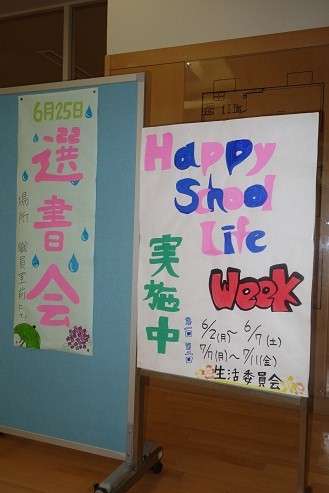 6月25日
選書会
場所 職員室前
Happy
School
Life
Week
実施中
第1回 6/2(月)～6/7(土)
第2回 7/7(月)～7/11(金)
生活委員会